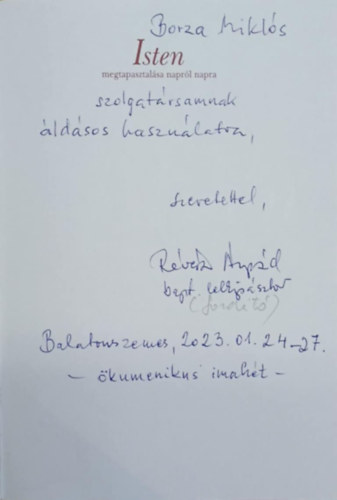 Borza Miklós
Isten
megtapasztalása napról napra
szolgatársamnak
áldásos használatra,
szeretettel,
Révész Árpád
bapt. lelkipásztor
(fordító)
Balatonszemes, 2023.01.24-27.
- ökumenikus imahét -